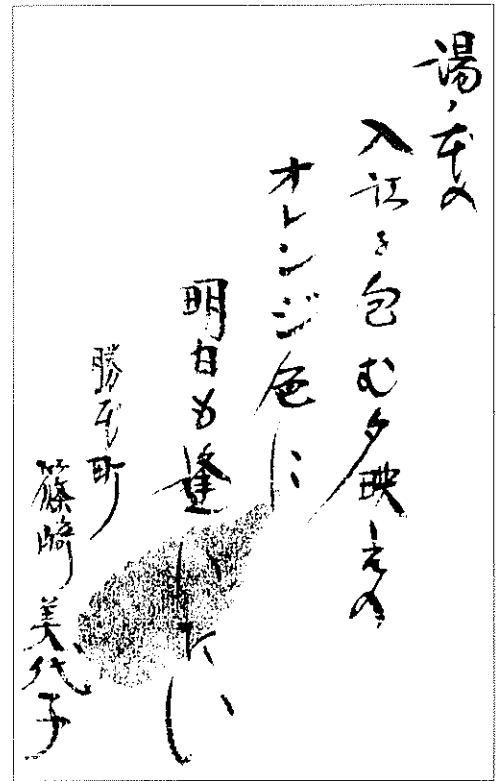 湯ノ本の
入江を包む夕映えの
オレンジ色に
明日も逢いたい
勝本町
篠崎美代子